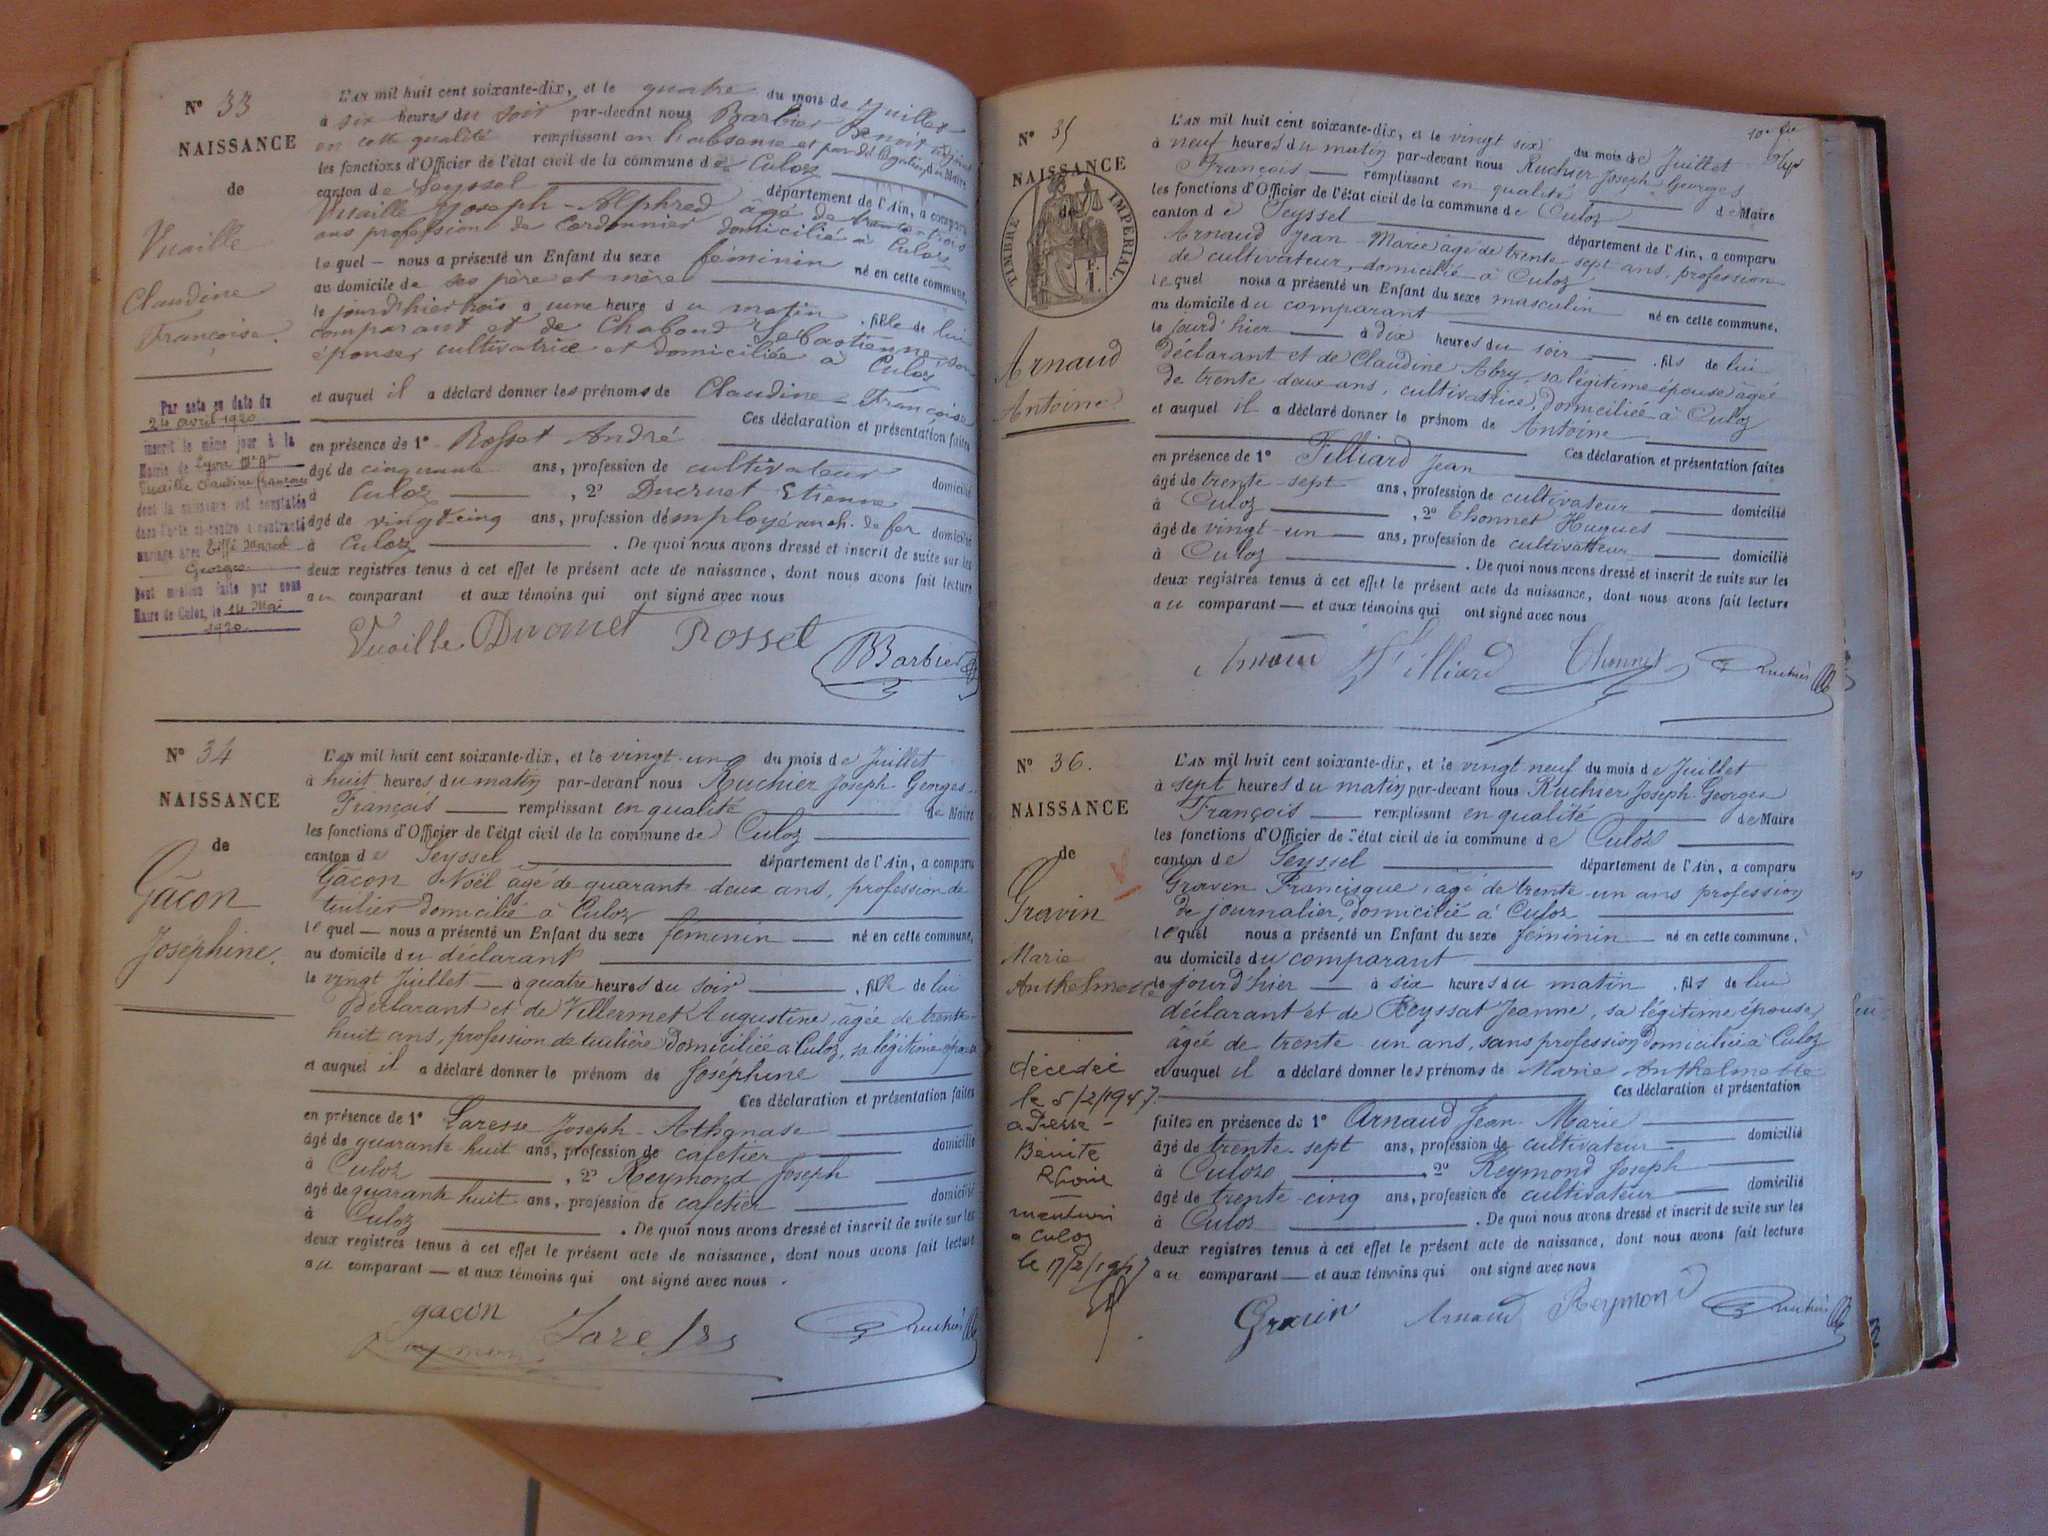 N° 33
NAISSANCE
de
Vuaille
Claudine
Françoise.
Par acte en date du
24 avril 1920
inscrit le même jour à la
Mairie de Lyon
Vuaille Claudine Françoise
dont la naissance est constatée
dans l'acte ci-contre a contracté
mariage avec Marcel
Georges
Dont mention faite par nous
Maire de Culoz, le 14 Mai
1920.
L'AN mil huit cent soixante-dix, et le quatre du mois de Juillet
à six heures du soir par-devant nous Barbier Benoit adjoint
en cette qualité remplissant en l'absence et par délégation du Maire
les fonctions d'Officier de l'état civil de la commune de Culoz
canton de Seyssel département de l'Ain, a comparu
Vuaille Joseph-Alphred âgé de trente-trois
ans profession de Cordonnier domicilié à Culoz
lequel nous a présenté un Enfant du sexe féminin né en cette commune,
au domicile de ses père et mère
le jourd'hier trois à une heure du matin, fille de lui
comparant et de Chaboud Sebastienne, son
épouse, cultivatrice et domiciliée à Culoz
et auquel il a déclaré donner les prénoms de Claudine-Françoise
Ces déclaration et présentation faites
en présence de 1° Rosset André
âgé de cinquante ans, profession de cultivateur domicilié
à Culoz, 2° Ducruet Etienne
âgé de vingt cinq ans, profession d'employé au ch. de fer domicilié
à Culoz. De quoi nous avons dressé et inscrit de suite sur les
deux registres tenus à cet effet le présent acte de naissance, dont nous avons fait lecture
au comparant et aux témoins qui ont signé avec nous
Vuaille Rosset
BBarbier
N° 34
NAISSANCE
de
Gâcon
Joséphine.
L'AN mil huit cent soixante-dix, et le vingt-un du mois de Juillet
à huit heures du matin par-devant nous Ruchier Joseph Georges
François remplissant en qualité de Maire
les fonctions d'Officier de l'état civil de la commune de Culoz
canton de Seyssel département de l'Ain, a comparu
Gâcon Noël âgé de quarante deux ans, profession de
tuilier domicilié à Culoz
lequel nous a présenté un Enfant du sexe féminin né en cette commune,
au domicile du déclarant
le vingt Juillet à quatre heures du soir, fille de lui
Déclarant et de Villermet Augustine, âgée de trente-
huit ans, profession de tuilière Domiciliée à Culoz, sa légitime épouse
et auquel il a déclaré donner le prénom de Joséphine
Ces déclaration et présentation faites
en présence de 1° Laresse Joseph-Athanase
âgé de quarante huit ans, profession de cafetier domicilié
à Culoz, 2° Reymond Joseph
âgé de quarante huit ans, profession de cafetier domicilié
à Culoz. De quoi nous avons dressé et inscrit de suite sur les
deux registres tenus à cet effet le présent acte de naissance, dont nous avons fait lecture
au comparant et aux témoins qui ont signé avec nous.
gacon Ruchier
N° 35
NAISSANCE
de
TIMBRE IMPÉRIAL.
Arnaud
Antoine.
L'AN mil huit cent soixante-dix, et le vingt six du mois de Juillet
à neuf heures du matin par-devant nous Ruchier Joseph Georges
François remplissant en qualité de Maire
les fonctions d'Officier de l'état civil de la commune de Culoz
canton de Seyssel département de l'Ain, a comparu
Arnaud Jean-Marie âgé de trente-sept ans, profession
de cultivateur, domicilié à Culoz
lequel nous a présenté un Enfant du sexe masculin né en cette commune,
au domicile du comparant
le jourd'hier à dix heures du soir, fils de lui
déclarant et de Claudine Abry, sa légitime épouse âgée
de trente deux ans, cultivatrice, domiciliée à Culoz
et auquel il a déclaré donner le prénom de Antoine
Ces déclaration et présentation faites
en présence de 1° Filliard Jean
âgé de trente-sept ans, profession de cultivateur domicilié
à Culoz, 2° Thonnet Hugues
âgé de vingt-un ans, profession de cultivateur domicilié
à Culoz. De quoi nous avons dressé et inscrit de suite sur les
deux registres tenus à cet effet le présent acte de naissance, dont nous avons fait lecture
au comparant et aux témoins qui ont signé avec nous
Arnaud Filliard Thonnet Ruchier
N° 36.
NAISSANCE
de
Gravin
Marie
Anthelmette
décédée
le 5/2/1947
a Pierre-
Bénite
Rhône
mention
a Culoz
le 17/2/1947
L'AN mil huit cent soixante-dix, et le vingt neuf du mois de Juillet
à sept heures du matin par-devant nous Ruchier Joseph Georges
François remplissant en qualité de Maire
les fonctions d'Officier de l'état civil de la commune de Culoz
canton de Seyssel département de l'Ain, a comparu
Gravin Francisque, âgé de trente-un ans profession
de journalier, domicilié à Culoz
lequel nous a présenté un Enfant du sexe féminin né en cette commune,
au domicile du comparant
le jourd'hier à six heures du matin, fils de lui
déclarant et de Reyssat Jeanne, sa légitime épouse,
âgée de trente un ans, sans profession domiciliée à Culoz
et auquel il a déclaré donner les prénoms de Marie Anthelmette
Ces déclaration et présentation
faites en présence de 1° Arnaud Jean-Marie
âgé de trente-sept ans, profession de cultivateur domicilié
à Culoz, 2° Reymond Joseph
âgé de trente-cinq ans, profession de cultivateur domicilié
à Culoz. De quoi nous avons dressé et inscrit de suite sur les
deux registres tenus à cet effet le présent acte de naissance, dont nous avons fait lecture
au comparant et aux témoins qui ont signé avec nous
Gravin Arnaud Reymond Ruchier